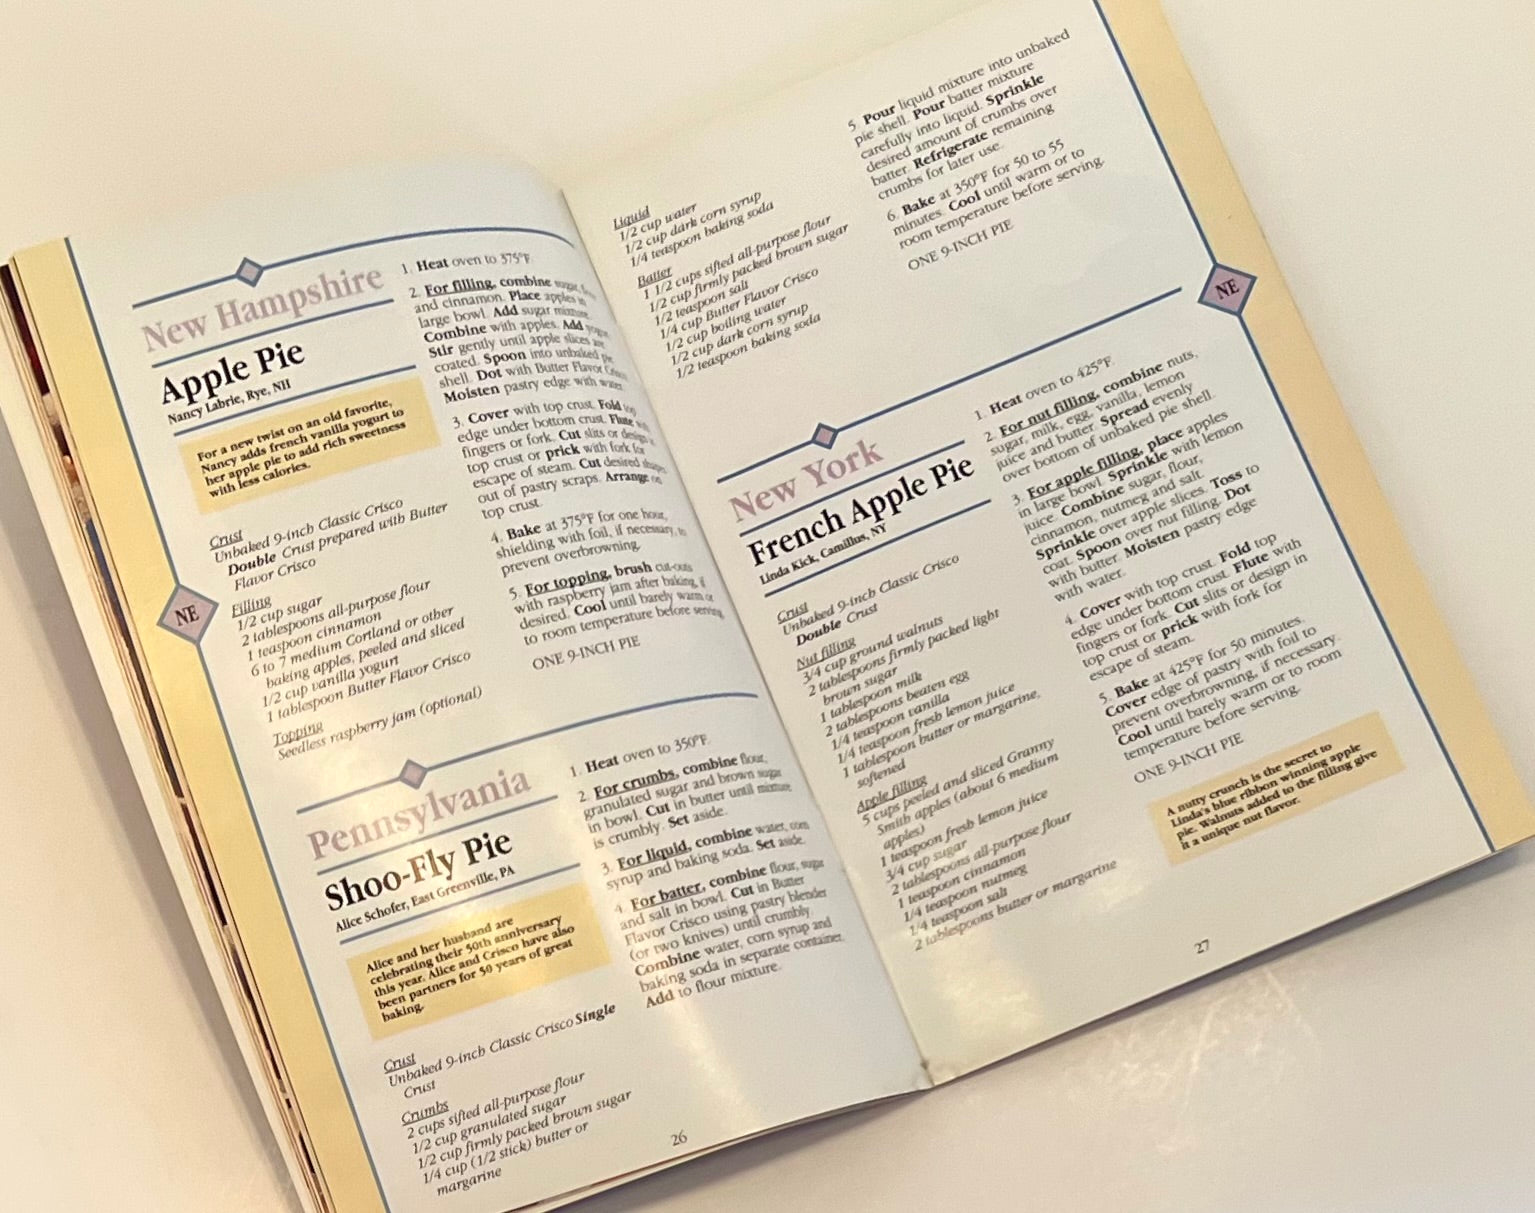 New Hampshire
Apple Pie
Nancy Labrie, Rye, NH
For a new twist on an old favorite,
Nancy adds french vanilla yogurt to
her apple pie to add rich sweetness
with less calories.
Crust
Unbaked 9-inch Classic Crisco
Double Crust prepared with Butter
Flavor Crisco
Filling
1/2 cup sugar
2 tablespoons all-purpose flour
1 teaspoon cinnamon
6 to 7 medium Cortland or other
baking apples, peeled and sliced
1/2 cup vanilla yogurt
1 tablespoon Butter Flavor Crisco
Topping
Seedless raspberry jam (optional)
1. Heat oven to 375°F.
2. For filling, combine sugar,
and cinnamon. Place apples in
large bowl. Add sugar mixture.
Combine with apples. Add
Stir gently until apple slices are
coated. Spoon into unbaked pie
shell. Dot with Butter Flavor Crisco
Moisten pastry edge with water.
3. Cover with top crust. Fold top
edge under bottom crust. Flute with
fingers or fork. Cut slits or design in
top crust or prick with fork for
escape of steam. Cut desired shapes
out of pastry scraps. Arrange on
top crust.
4. Bake at 375°F for one hour,
shielding with foil, if necessary, to
prevent overbrowning.
5. For topping, brush cut-outs
with raspberry jam after baking, if
desired. Cool until barely warm or
to room temperature before serving.
ONE 9-INCH PIE
NE
Pennsylvania
Shoo-Fly Pie
Alice Schofer, East Greenville, PA
Alice and her husband are
celebrating their 50th anniversary
this year. Alice and Crisco have also
been partners for 50 years of great
baking.
Crust
Unbaked 9-inch Classic Crisco Single
Crust
Crumbs
2 cups sifted all-purpose flour
1/2 cup granulated sugar
1/2 cup firmly packed brown sugar
1/4 cup (1/2 stick) butter or
margarine
1. Heat oven to 350°F.
2. For crumbs, combine flour,
granulated sugar and brown sugar
in bowl. Cut in butter until mixture
is crumbly. Set aside.
3. For liquid, combine water, corn
syrup and baking soda. Set aside.
4. For batter, combine flour, sugar
and salt in bowl. Cut in Butter
Flavor Crisco using pastry blender
(or two knives) until crumbly.
Combine water, corn syrup and
baking soda in separate container.
Add to flour mixture.
26
Liquid
1/2 cup water
1/2 cup dark corn syrup
1/4 teaspoon baking soda
Batter
1 1/2 cups sifted all-purpose flour
1/2 cup firmly packed brown sugar
1/2 teaspoon salt
1/4 cup Butter Flavor Crisco
1/2 cup boiling water
1/2 cup dark corn syrup
1/2 teaspoon baking soda
5. Pour liquid mixture into unbaked
pie shell. Pour batter mixture
carefully into liquid. Sprinkle
desired amount of crumbs over
batter. Refrigerate remaining
crumbs for later use.
6. Bake at 350°F for 50 to 55
minutes. Cool until warm or to
room temperature before serving.
ONE 9-INCH PIE
NE
New York
French Apple Pie
Linda Kick, Camillus, NY
Crust
Unbaked 9-inch Classic Crisco
Double Crust
Nut filling
3/4 cup ground walnuts
2 tablespoons firmly packed light
brown sugar
1 tablespoon milk
2 tablespoons beaten egg
1/4 teaspoon vanilla
1/4 teaspoon fresh lemon juice
1 tablespoon butter or margarine,
softened
Apple filling
5 cups peeled and sliced Granny
Smith apples (about 6 medium
apples)
1 teaspoon fresh lemon juice
3/4 cup sugar
2 tablespoons all-purpose flour
1 teaspoon cinnamon
1/4 teaspoon nutmeg
1/4 teaspoon salt
2 tablespoons butter or margarine
1. Heat oven to 425°F.
2. For nut filling, combine nuts,
sugar, milk, egg, vanilla, lemon
juice and butter. Spread evenly
over bottom of unbaked pie shell.
3. For apple filling, place apples
in large bowl. Sprinkle with lemon
juice. Combine sugar, flour,
cinnamon, nutmeg and salt.
Sprinkle over apple slices. Toss to
coat. Spoon over nut filling. Dot
with butter. Moisten pastry edge
with water.
4. Cover with top crust. Fold top
edge under bottom crust. Flute with
fingers or fork. Cut slits or design in
top crust or prick with fork for
escape of steam.
5. Bake at 425°F for 50 minutes.
Cover edge of pastry with foil to
prevent overbrowning, if necessary.
Cool until barely warm or to room
temperature before serving.
ONE 9-INCH PIE
A nutty crunch is the secret to
Linda's blue ribbon winning apple
pie. Walnuts added to the filling give
it a unique nut flavor.
27